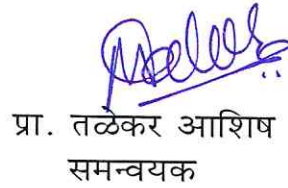 प्रा. तळेकर आशिष
समन्वयक